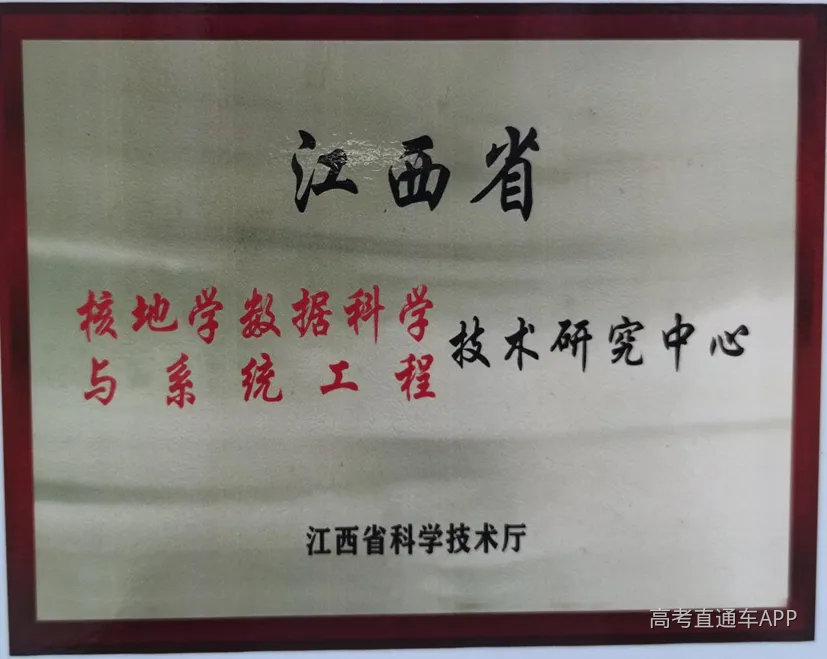 江西省
核地学数据科学
与系统工程
技术研究中心
江西省科学技术厅
高考直通车APP